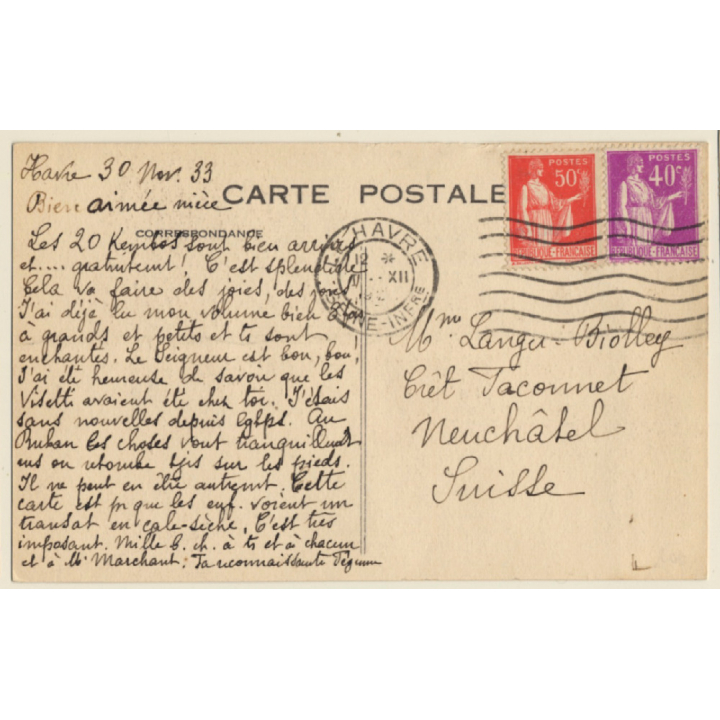 Havre 30 Nov. 33
Bien aimée nièce
CARTE POSTALE
CORRESPONDANCE
Les 20 Kembos sont bien arrivés
et.... gratuitemt! C'est splendide
Cela va faire des joies, des
J'ai déjà lu mon volume bien
à grands et petits et ts sont
enchantés. Le Seigneur est bon, bon!
J'ai été heureuse de savoir que les
Visetti avaient été chez toi. J'étais
sans nouvelles depuis lgtps. Au
Ruban les choses vont tranquillemt
on retombe tjrs sur les pieds.
Il ne peut en être autremt. Cette
carte est pr que les enf. voient un
transat en cale-sèche. C'est très
imposant. Mille b. ch. à ts et à chacun
et à Mr Marchant. Ta reconnaissante
HAVRE
12 *
XII
SEINE-INFRE
POSTES
50c
REPUBLIQUE-FRANÇAISE
POSTES
40c
REPUBLIQUE-FRANÇAISE
Mme Langer-Biolley
Crêt Taconnet
Neuchâtel
Suisse